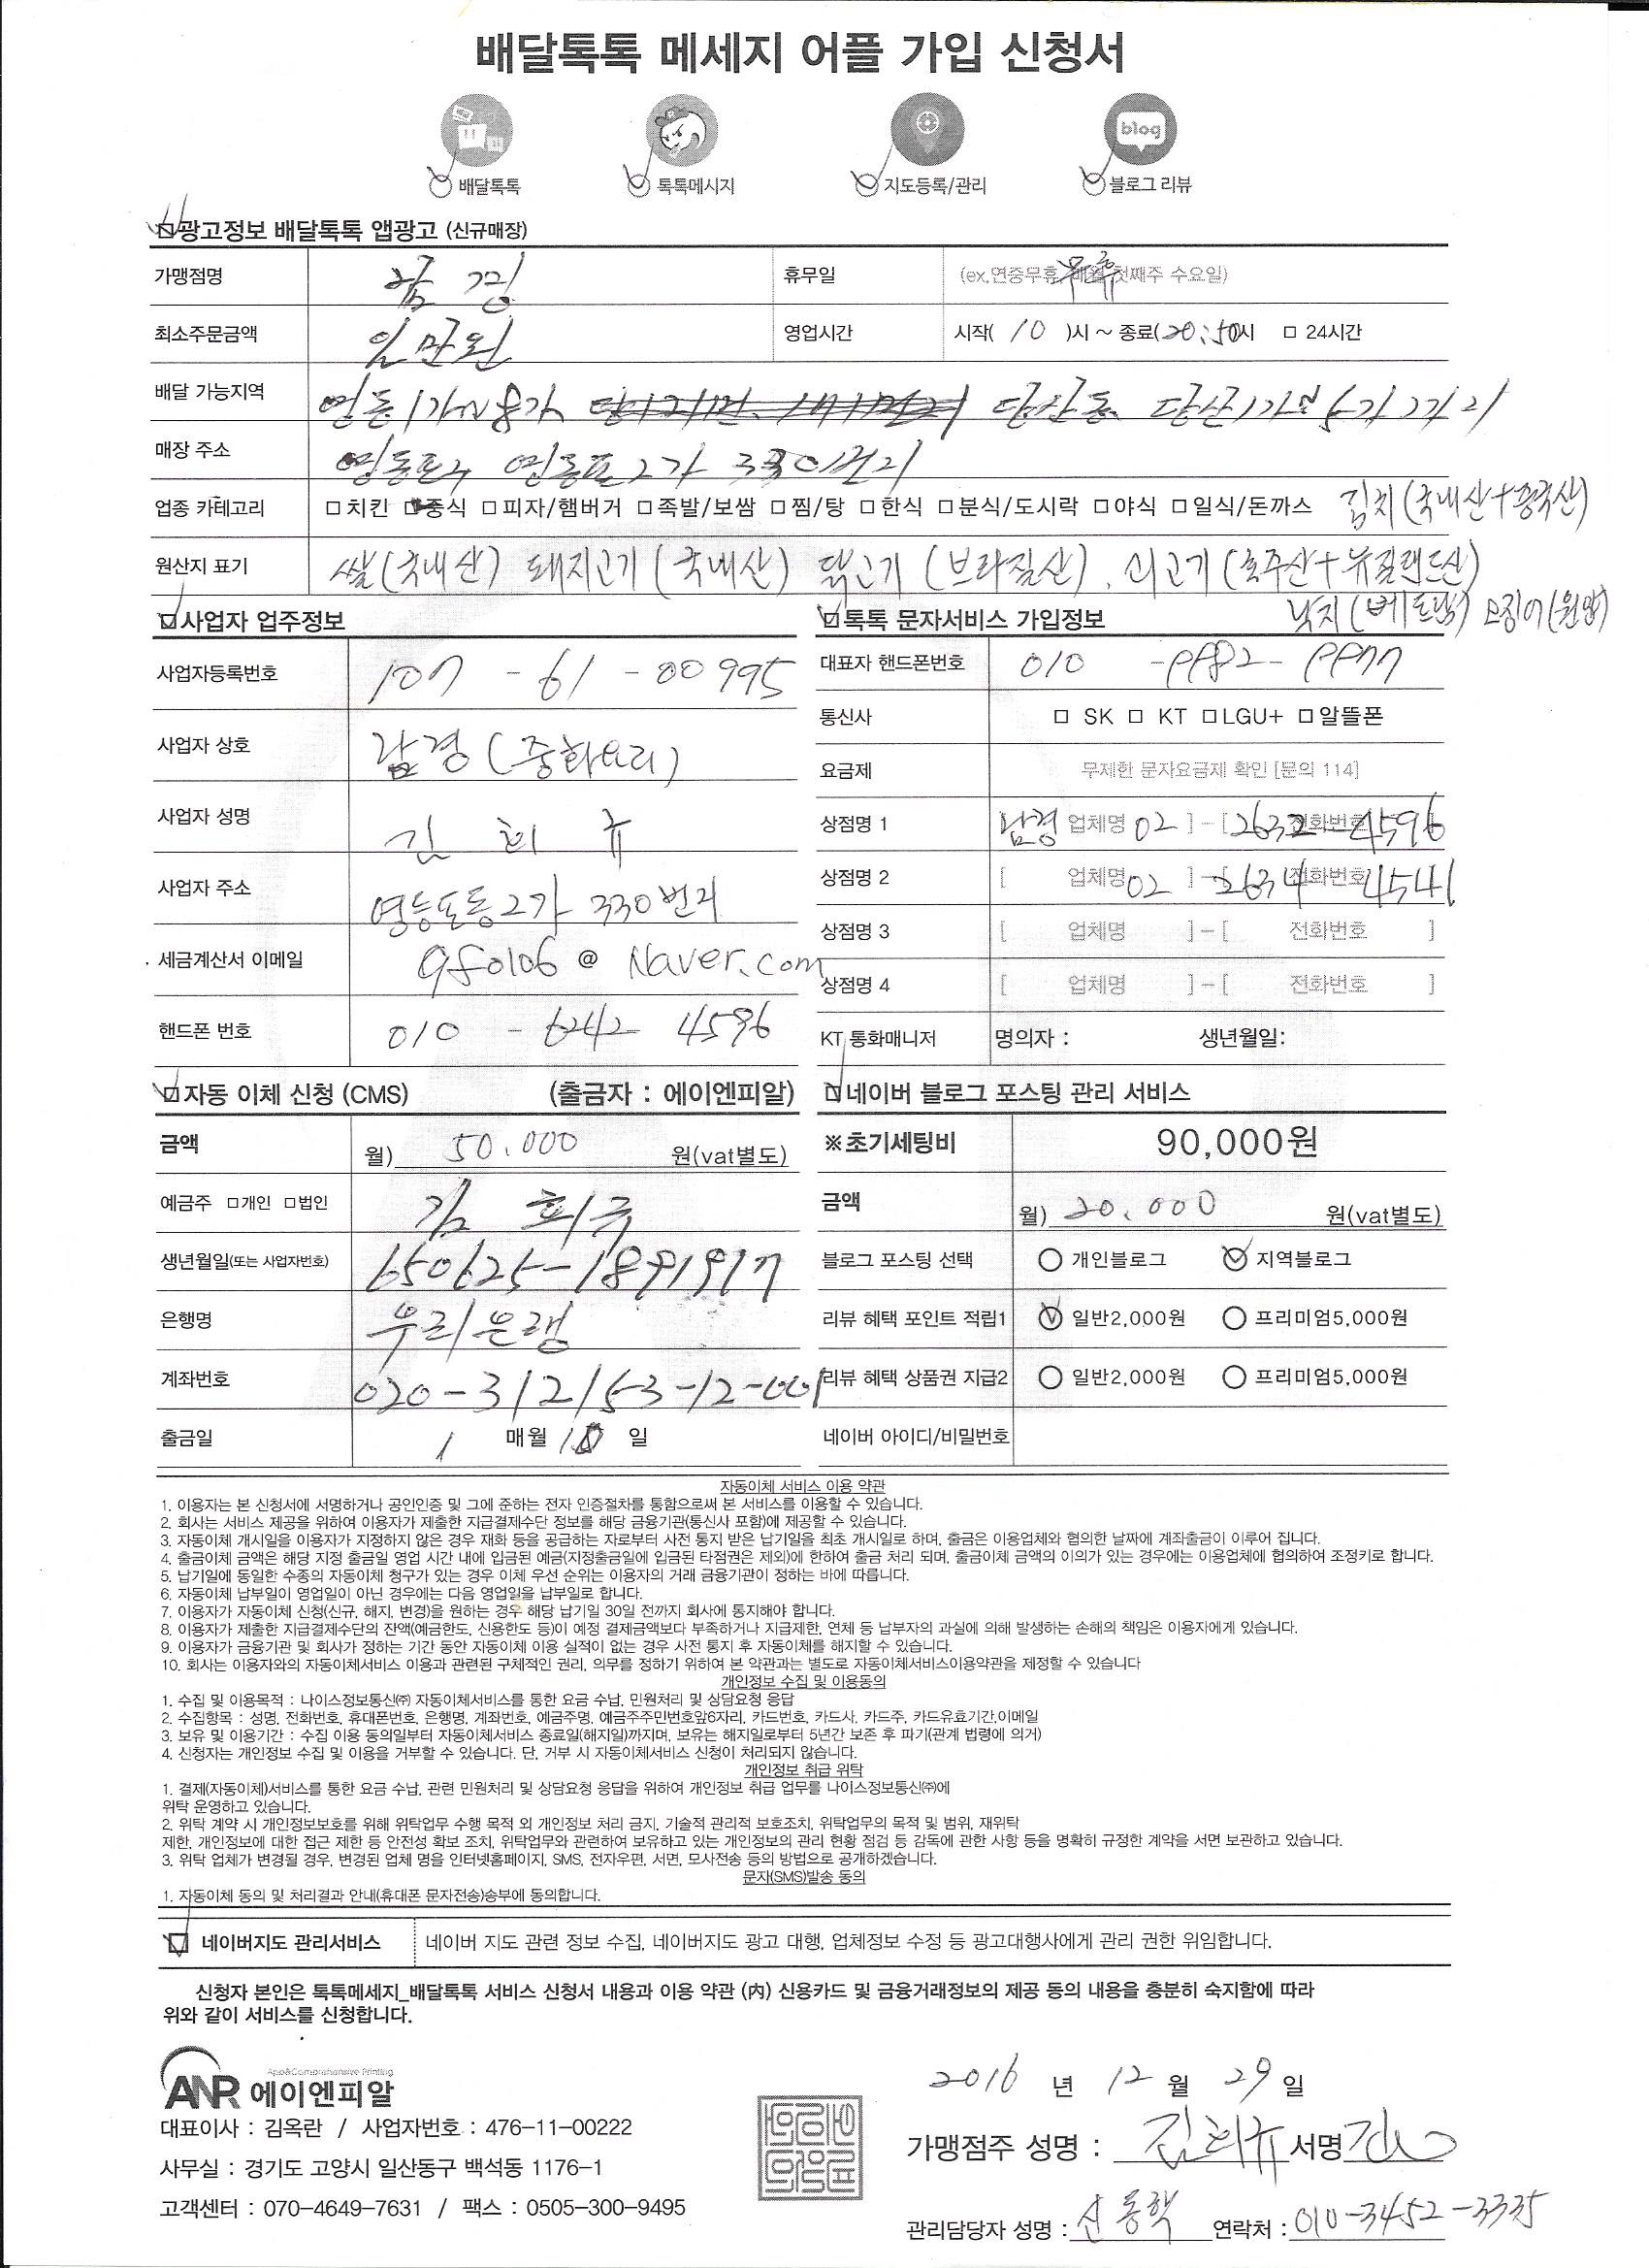 배달톡톡 메세지 어플 가입 신청서
blog
배달톡톡 톡톡메시지 지도등록/관리 블로그 리뷰
광고정보 배달톡톡 앱광고 (신규매장)
가맹점명 남경 휴무일 (ex.연중무휴, 매월 첫째주 수요일) 무휴
최소주문금액 일만원 영업시간 시작( 10 )시 ~ 종료(20:50)시 □ 24시간
배달 가능지역 당산동
매장 주소 영등포구 영등포 2가
업종 카테고리 □치킨 □중식 □피자/햄버거 □족발/보쌈 □찜/탕 □한식 □분식/도시락 □야식 □일식/돈까스 김치(국내산+중국산)
원산지 표기 쌀(국내산) 돼지고기(국내산) 닭고기(브라질산), 쇠고기(호주산+뉴질랜드산)
낙지(베트남) 오징어(원양)
사업자 업주정보
사업자등록번호 107-61-00995
사업자 상호 남경(중화요리)
사업자 성명 김희규
사업자 주소 영등포동2가 330번지
세금계산서 이메일 @ Naver.com
핸드폰 번호 010-6242 4596
톡톡 문자서비스 가입정보
대표자 핸드폰번호 010
통신사 □ SK □ KT □LGU+ □알뜰폰
요금제 무제한 문자요금제 확인 [문의 114]
상점명 1 남경 업체명 02 ]-[ 2632 전화번호 4596
상점명 2 [ 업체명 02 ]-[ 2634 전화번호 4541
상점명 3 [ 업체명 ]-[ 전화번호 ]
상점명 4 [ 업체명 ]-[ 전화번호 ]
KT 통화매니저 명의자 : 생년월일:
자동 이체 신청 (CMS) (출금자 : 에이엔피알)
금액 월) 50,000 원(vat별도)
예금주 □개인 □법인 김희규
생년월일(또는 사업자번호)
은행명 우리은행
계좌번호
출금일 매월 일
네이버 블로그 포스팅 관리 서비스
※초기세팅비 90,000원
금액 월) 20,000 원(vat별도)
블로그 포스팅 선택 개인블로그 지역블로그
리뷰 혜택 포인트 적립1 일반2,000원 프리미엄5,000원
리뷰 혜택 상품권 지급2 일반2,000원 프리미엄5,000원
네이버 아이디/비밀번호
자동이체 서비스 이용 약관
1. 이용자는 본 신청서에 서명하거나 공인인증 및 그에 준하는 전자 인증절차를 통함으로써 본 서비스를 이용할 수 있습니다.
2. 회사는 서비스 제공을 위하여 이용자가 제출한 지급결제수단 정보를 해당 금융기관(통신사 포함)에 제공할 수 있습니다.
3. 자동이체 개시일을 이용자가 지정하지 않은 경우 재화 등을 공급하는 자로부터 사전 통지 받은 납기일을 최초 개시일로 하며, 출금은 이용업체와 협의한 날짜에 계좌출금이 이루어 집니다.
4. 출금이체 금액은 해당 지정 출금일 영업 시간 내에 입금된 예금(지정출금일에 입금된 타점권은 제외)에 한하여 출금 처리 되며, 출금이체 금액의 이의가 있는 경우에는 이용업체에 협의하여 조정키로 합니다.
5. 납기일에 동일한 수종의 자동이체 청구가 있는 경우 이체 우선 순위는 이용자의 거래 금융기관이 정하는 바에 따릅니다.
6. 자동이체 납부일이 영업일이 아닌 경우에는 다음 영업일을 납부일로 합니다.
7. 이용자가 자동이체 신청(신규, 해지, 변경)을 원하는 경우 해당 납기일 30일 전까지 회사에 통지해야 합니다.
8. 이용자가 제출한 지급결제수단의 잔액(예금한도, 신용한도 등)이 예정 결제금액보다 부족하거나 지급제한, 연체 등 납부자의 과실에 의해 발생하는 손해의 책임은 이용자에게 있습니다.
9. 이용자가 금융기관 및 회사가 정하는 기간 동안 자동이체 이용 실적이 없는 경우 사전 통지 후 자동이체를 해지할 수 있습니다.
10. 회사는 이용자와의 자동이체서비스 이용과 관련된 구체적인 권리, 의무를 정하기 위하여 본 약관과는 별도로 자동이체서비스이용약관을 제정할 수 있습니다
개인정보 수집 및 이용동의
1. 수집 및 이용목적 : 나이스정보통신㈜ 자동이체서비스를 통한 요금 수납, 민원처리 및 상담요청 응답
2. 수집항목 : 성명, 전화번호, 휴대폰번호, 은행명, 계좌번호, 예금주명, 예금주주민번호앞6자리, 카드번호, 카드사, 카드주, 카드유효기간,이메일
3. 보유 및 이용기간 : 수집 이용 동의일부터 자동이체서비스 종료일(해지일)까지며, 보유는 해지일로부터 5년간 보존 후 파기(관계 법령에 의거)
4. 신청자는 개인정보 수집 및 이용을 거부할 수 있습니다. 단, 거부 시 자동이체서비스 신청이 처리되지 않습니다.
개인정보 취급 위탁
1. 결제(자동이체)서비스를 통한 요금 수납, 관련 민원처리 및 상담요청 응답을 위하여 개인정보 취급 업무를 나이스정보통신㈜에
위탁 운영하고 있습니다.
2. 위탁 계약 시 개인정보보호를 위해 위탁업무 수행 목적 외 개인정보 처리 금지, 기술적 관리적 보호조치, 위탁업무의 목적 및 범위, 재위탁
제한, 개인정보에 대한 접근 제한 등 안전성 확보 조치, 위탁업무와 관련하여 보유하고 있는 개인정보의 관리 현황 점검 등 감독에 관한 사항 등을 명확히 규정한 계약을 서면 보관하고 있습니다.
3. 위탁 업체가 변경될 경우, 변경된 업체 명을 인터넷홈페이지, SMS, 전자우편, 서면, 모사전송 등의 방법으로 공개하겠습니다.
문자(SMS)발송 동의
1. 자동이체 동의 및 처리결과 안내(휴대폰 문자전송)송부에 동의합니다.
네이버지도 관리서비스 네이버 지도 관련 정보 수집, 네이버지도 광고 대행, 업체정보 수정 등 광고대행사에게 관리 권한 위임합니다.
신청자 본인은 톡톡메세지_배달톡톡 서비스 신청서 내용과 이용 약관 (內) 신용카드 및 금융거래정보의 제공 동의 내용을 충분히 숙지함에 따라
위와 같이 서비스를 신청합니다.
ANR 에이엔피알
대표이사 : 김옥란 / 사업자번호 : 476-11-00222
사무실 : 경기도 고양시 일산동구 백석동 1176-1
고객센터 : 070-4649-7631 / 팩스 : 0505-300-9495
2016 년 12 월 29 일
가맹점주 성명 : 김희규 서명
관리담당자 성명 : 신동핵 연락처 : 010-3452-3335